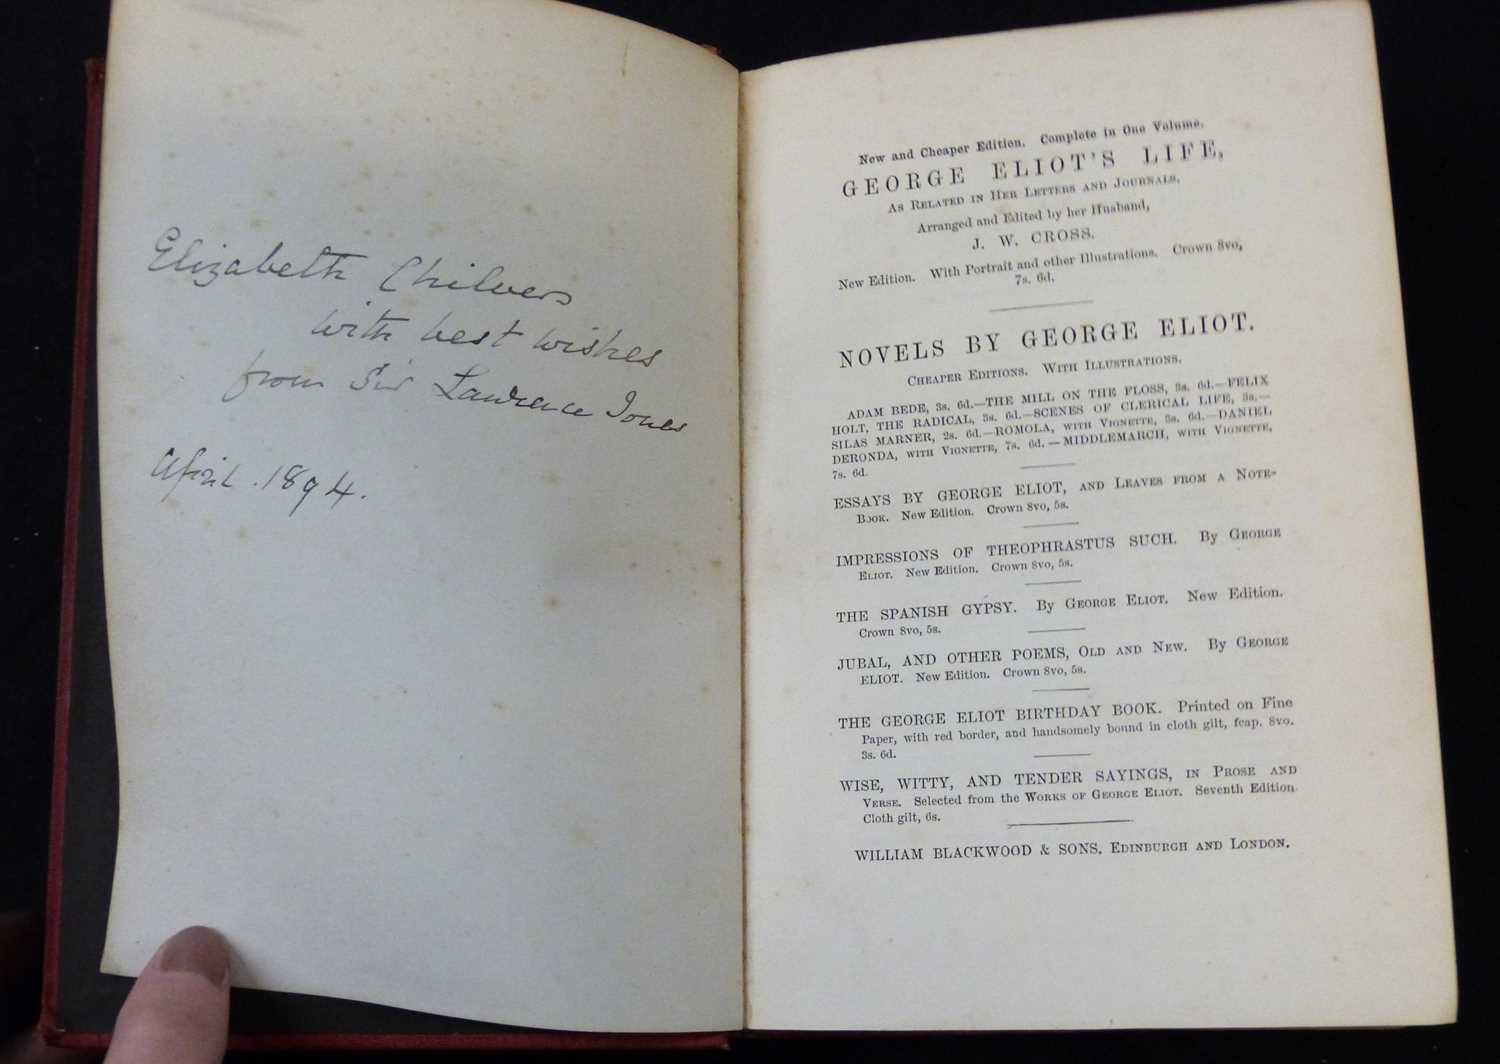 Elizabeth Chilvers
with best wishes
from Sir Lawrence Jones
April. 1894.
New and Cheaper Edition. Complete in One Volume.
GEORGE ELIOT'S LIFE,
AS RELATED IN HER LETTERS AND JOURNALS.
Arranged and Edited by her Husband,
J. W. CROSS.
New Edition. With Portrait and other Illustrations. Crown 8vo,
7s. 6d.
NOVELS BY GEORGE ELIOT.
CHEAPER EDITIONS. WITH ILLUSTRATIONS.
ADAM BEDE, 3s. 6d.—THE MILL ON THE FLOSS, 3s. 6d.—FELIX
HOLT, THE RADICAL, 3s. 6d.—SCENES OF CLERICAL LIFE, 3s.—
SILAS MARNER, 2s. 6d.—ROMOLA, WITH VIGNETTE, 3s. 6d.—DANIEL
DERONDA, WITH VIGNETTE, 7s. 6d.—MIDDLEMARCH, WITH VIGNETTE,
7s. 6d.
ESSAYS BY GEORGE ELIOT, AND LEAVES FROM A NOTE-
BOOK. New Edition. Crown 8vo, 5s.
IMPRESSIONS OF THEOPHRASTUS SUCH. By GEORGE
ELIOT. New Edition. Crown 8vo, 5s.
THE SPANISH GYPSY. By GEORGE ELIOT. New Edition.
Crown 8vo, 5s.
JUBAL, AND OTHER POEMS, OLD AND NEW. By GEORGE
ELIOT. New Edition. Crown 8vo, 5s.
THE GEORGE ELIOT BIRTHDAY BOOK. Printed on Fine
Paper, with red border, and handsomely bound in cloth gilt, fcap. 8vo.
3s. 6d.
WISE, WITTY, AND TENDER SAYINGS, IN PROSE AND
VERSE. Selected from the WORKS OF GEORGE ELIOT. Seventh Edition
Cloth gilt, 6s.
WILLIAM BLACKWOOD & SONS, EDINBURGH AND LONDON.